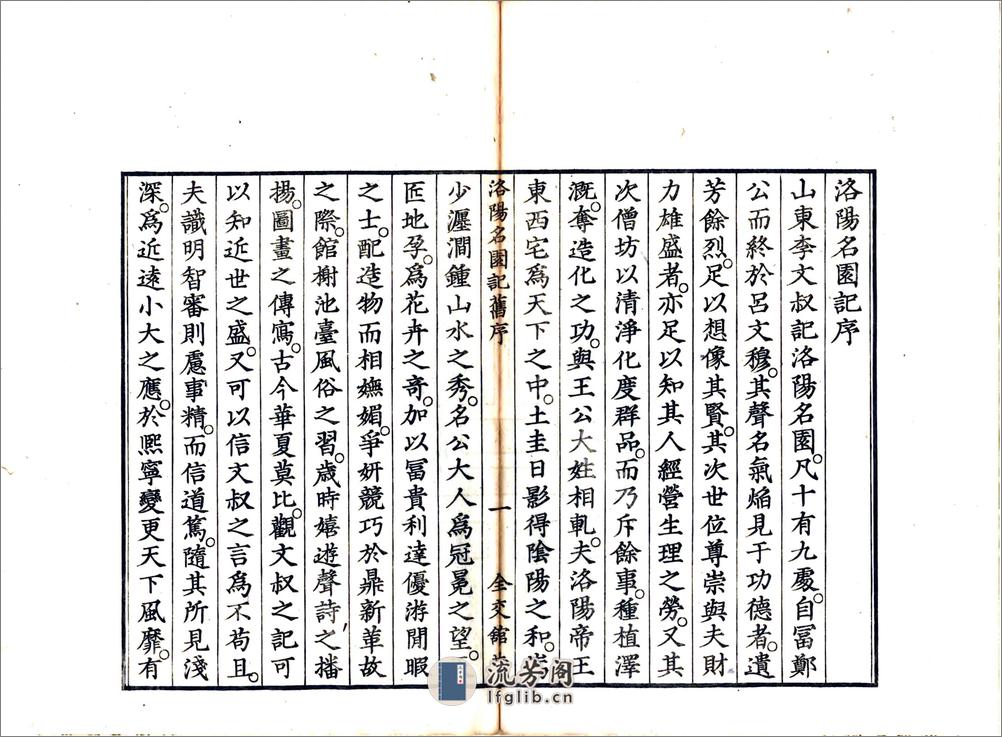 洛陽名園記序
山東李文叔記洛陽名園。凡十有九處。自冨鄭
公而終於呂文穆。其聲名氣焰見于功德者。遺
芳餘烈。足以想像其賢。其次世位尊崇與夫財
力雄盛者。亦足以知其人經營生理之勞。又其
次僧坊以清淨化度群品。而乃斥餘事。種植澤
溉。奪造化之功。與王公大姓相軋。夫洛陽帝王
東西宅為天下之中。土圭日影得陰陽之和。嵩
洛陽名園記舊序 一 全交館
少瀍澗鍾山水之秀。名公大人為冠冕之望。
匝地孕。為花卉之竒。加以冨貴利達優游閒暇
之士。配造物而相嫵媚。爭妍競巧於鼎新革故
之際。館榭池臺風俗之習。歲時嬉遊聲詩之播
揚。圖畫之傳寫。古今華夏莫比。觀文叔之記可
以知近世之盛。又可以信文叔之言為不苟且。
夫識明智審則慮事精。而信道篤。隨其所見淺
深。為近遠小大之應。於熙寧變更天下風靡。有
流芳阁
lfglib.cn